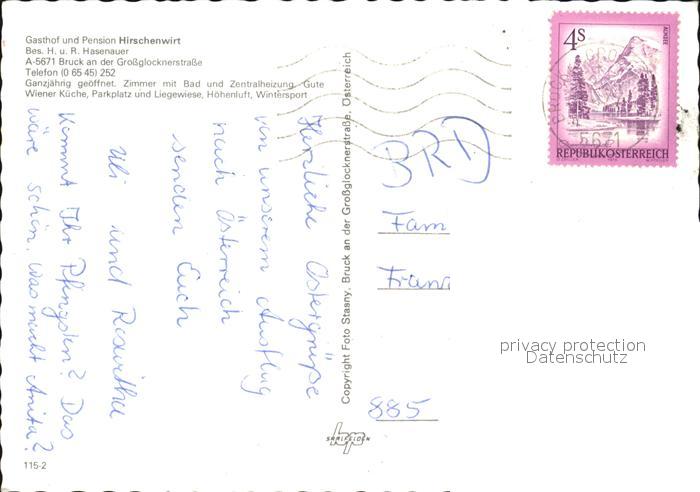 Gasthof und Pension Hirschenwirt
Bes. H. u. R. Hasenauer
A-5671 Bruck an der Großglocknerstraße
Telefon (0 65 45) 252
Ganzjährig geöffnet. Zimmer mit Bad und Zentralheizung. Gute
Wiener Küche, Parkplatz und Liegewiese, Höhenluft, Wintersport
Herzliche Ostergrüße
von unserem Ausflug
nach Österreich
senden Euch
Uli und Roswitha
Kommt Ihr Pfingsten? Das
wäre schön. Was macht Anita?
115-2
Copyright Foto Stasny, Bruck an der Großglocknerstraße, Österreich
SAALFELDEN
4S
REPUBLIK ÖSTERREICH
5671
BRD
Fam
Franz
885
privacy protection
Datenschutz